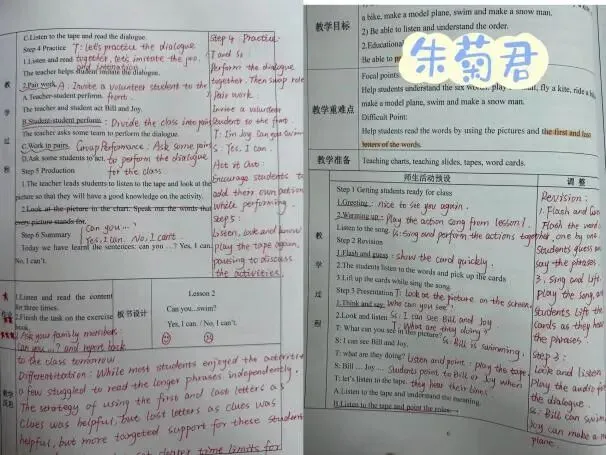 C.Listen to the tape and read the dialogue.
Step 4 Practice T: Let's practice the dialogue
1.Listen and read together, let's imitate the pro.
The teacher helps student imitate the dialogue.
2.Pair work. A. Invite a volunteer student to the
A.Teacher-student perform. front.
The teacher and student act Bill and Joy.
B.Student-student perform: Divide the class into pairs
The teacher asks some team to perform the dialogue.
C.Work in pairs. Group Performance: Ask some pairs
D.Ask some students to act. to perform the dialogue
Step 5 Production for the class
1.The teacher leads students to listen to the tape and look at the
picture so that they will have a good knowledge on the activity.
2.Look at the picture in the chart. Speak out the words that
every picture stands for.
Step 6 Summary Can you...?
Yes, I can. No, I can't
Today we have learnt the sentences: can you ...? Yes, I can.
No, I can't.
教
学
过
程
Step 4 Practice:
T and Ss
Perform the dialogue
together. Then swap role
Pair work.
Invite a volunteer
Student to the front.
T: I'm Joy. Can you swim
S: Yes, I can.
Act it Out:
Encourage students to
add their own
while performing.
Step 5:
Listen, look and know
play the tape again,
pausing to discuss
the activities.
1.Listen and read the content
for three times.
2.Finish the task on the exercise
book.
3. Ask your family members:
can you ...? and report back
to the class tomorrow
板书设计
Lesson 2
Can you...swim?
Yes, I can. / No, I can't.
教学
反思
Differentiation: While most students enjoyed the activities
a few stuggled to read the longer phrases independently.
The strategy of using the first and last letters as
Clues was helpful, but last letters as clues was
helpful, but more targeted support for these students
time limits for
朱菊君
教学目标
a bike, make a model plane, swim and make a snow man.
2) Be able to listen and understand the order.
2.Educational
Be able to
教学重难点
Focal points
Help students understand the six words, play, fly a kite, ride a
make a model plane, swim and make a snow man.
Difficult Point:
Help students read the words by using the pictures and the first and last
letters of the words.
教学准备
Teaching charts, teaching slides, tapes, word cards.
师生活动预设
调 整
教
学
过
程
Step 1 Getting students ready for class
1.Greeting: nice to see you again.
2.Warming up: Play the action song from lesson 1.
Listen to the song. Ss: Sing and perform the actions together
Step 2 Revision
1.Flash and guess: show the card quickly.
2.The students listen to the words and pick up the cards
3.Lift up the cards while sing the song
Step 3 Presentation T: Look at the picture on the screen.
1.Think and say. Who can you see?
2.Look and listen Ss: I can see Bill and Joy
T: What are they doing?
T: What can you see in this picture? Ss: Bill is swimming.
S: I can see Bill and Joy.
T: what are they doing? Listen and point: play the tape,
S: Bill ... Joy ... Students point to Bill or Joy when
T: let's listen to the tape. they hear their lines
A.Listen to the tape and understand the meaning.
B.Listen to the tape and point the roles.
Revision:
1. Flash and Guess
Flash the words
one by one.
Students guess and
say the phrases.
3. Sing and Lift
Play the song, as
Students Lift the
Cards as they hear
the phrases.
Step 3:
Look and listen
Play the audio for
the dialogue.
Ss: Bill can swim
Joy can make a model
plane.
6